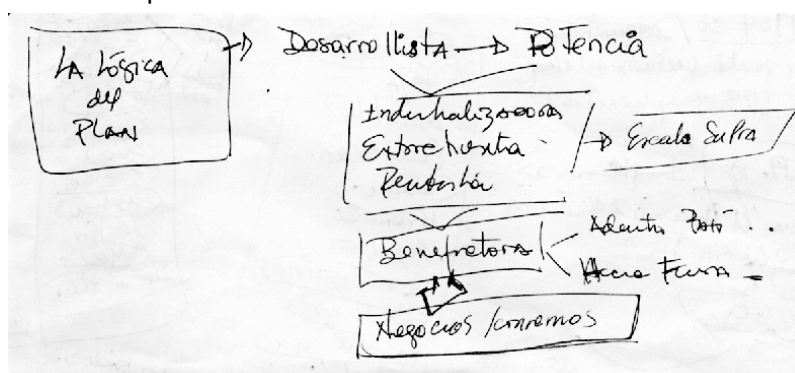 LA Lógica
del
PLAN
Desarrollista → Potencia
Industrializadora
Extractivista
Rentista
→ Escala Supra
Benefactora
Adentro
Hacia Fuera -
Negocios / convenios